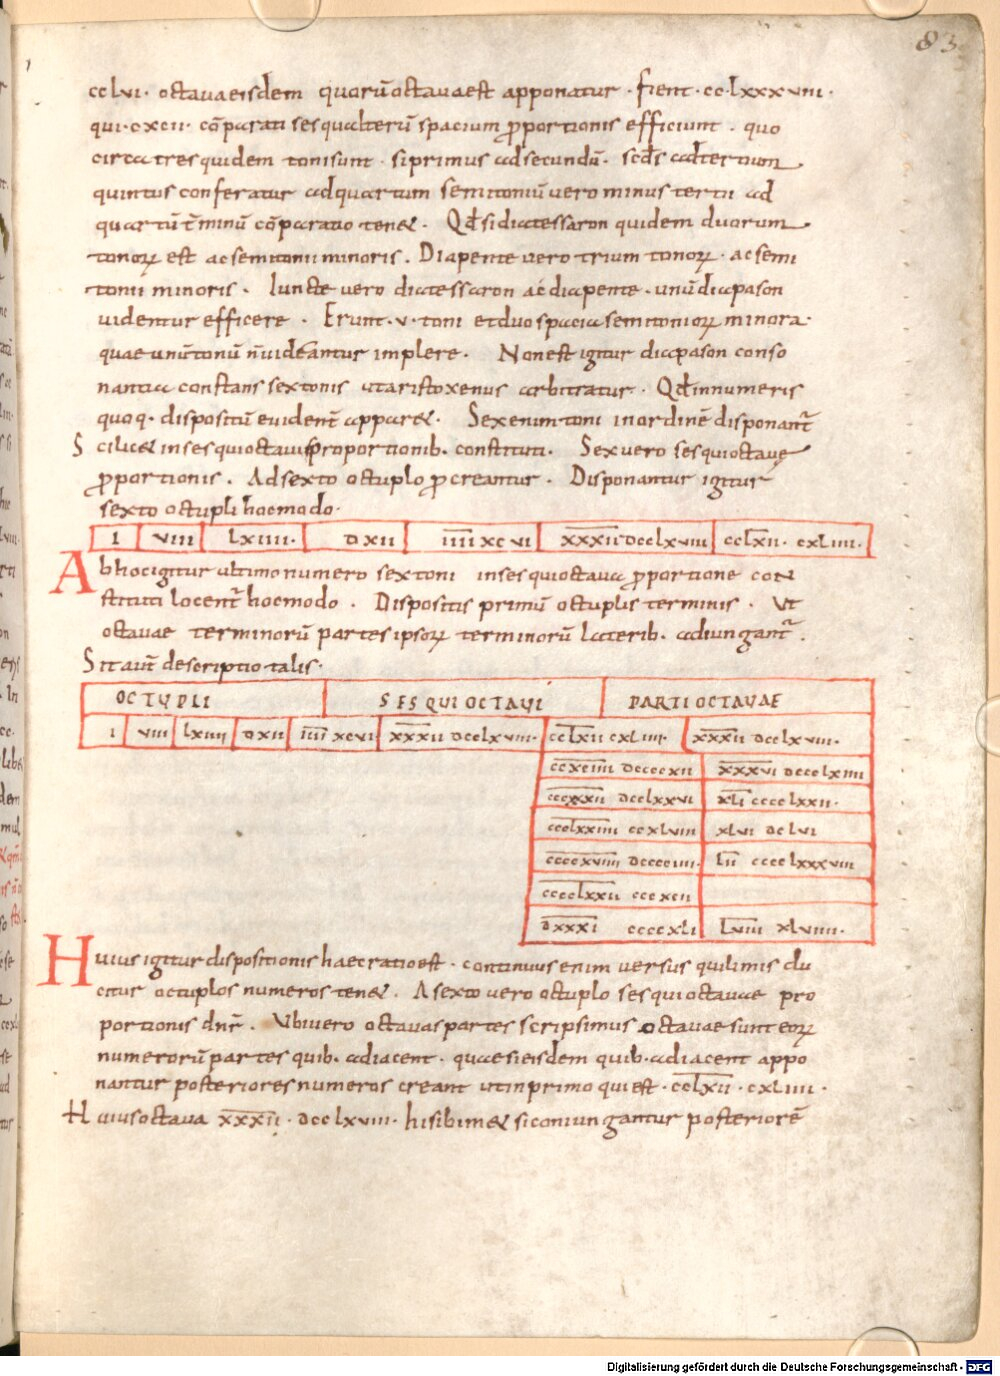 83
cclvi· octavaeisdem quorū octavaest apponatur · fient · cc·lxxxviii·
qui·cxcii· cōparati sesqualterū spacium proportionis efficiunt · quo
circa tres quidem toni sunt · si primus ad secundū· scds ad tertium
quintus conferatur ad quartum semitoniū vero minus tertii ad
quartū t̄minū cōparatio ten&· Qd si diatessaron quidem duorum
tonoꝝ est ac semitonii minoris. Diapente vero trium tonoꝝ· ac semi
tonii minoris· Iuncte vero diatessaron ac diapente · unū diapason
videntur efficere · Erunt·v·toni et duo spacia semitonioꝝ minora·
quae unū tonū n̄ videantur implere· Non est igitur diapason conso
nantia constans sex tonis ut aristoxenus arbitratur· Qd in numeris
quoq· dispositū evident̄ appar&· Sex enim toni in ordinē disponant̄
Scilic& in sesquioctavis proportionib· constituti· Sex vero sesquioctavę
ꝓportionis· Ad sexto octuplo ꝓcreantur· Disponantur igitur
sexto octupli hoc modo·
I viii lxiiii· dxii iiii xcvi xxxii dcclxviii cclxii· cxliiii·
Ab hoc igitur ultimo numero sex toni in sesquioctava ꝓportione con
stituti locent̄ hoc modo· Dispositis primū octuplis terminis· Ut
octavae terminorū partes ipsoꝝ terminorū laterib· adiungant̄·
Sit aut̄ descriptio talis·
OCTUPLI SESQUIOCTAUI PARTI OCTAVAE
I viii lxiiii dxii iiii xcvi xxxii dcclxviii· cclxii cxliiii· xxxii dcclxviii·
ccxciiii dccccxii xxxvi dccclxiiii
cccxxxii dcclxxvi xli cccclxxii·
ccclxxiiii ccxlviii xlvi dclvi
ccccxviiii dcccciiii· lii cccclxxxviii
cccclxxii cccxcii
dxxxi ccccxli lviii xlviiii·
Huius igitur dispositionis haec ratio est· continuus enim versus qui limis du
citur octuplos numeros ten&· A sexto vero octuplo sesquioctavae pro
portionis dn̄r· Ubi vero octavas partes scripsimus octavae sunt eoꝝ
numerorū partes quib· adiacent· quae si eisdem quib· adiacent appo
nantur posteriores numeros creant ut in primo qui est· cclxii· cxliiii·
Huius octava xxxii· dcclxviii· hi sibim& si coniungantur posteriorē
Digitalisierung gefördert durch die Deutsche Forschungsgemeinschaft - DFG